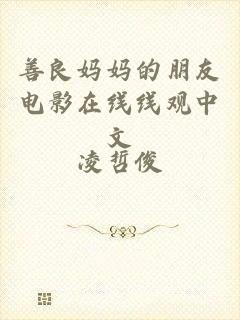 善良妈妈的朋友
电影在线线观中
文
凌哲俊